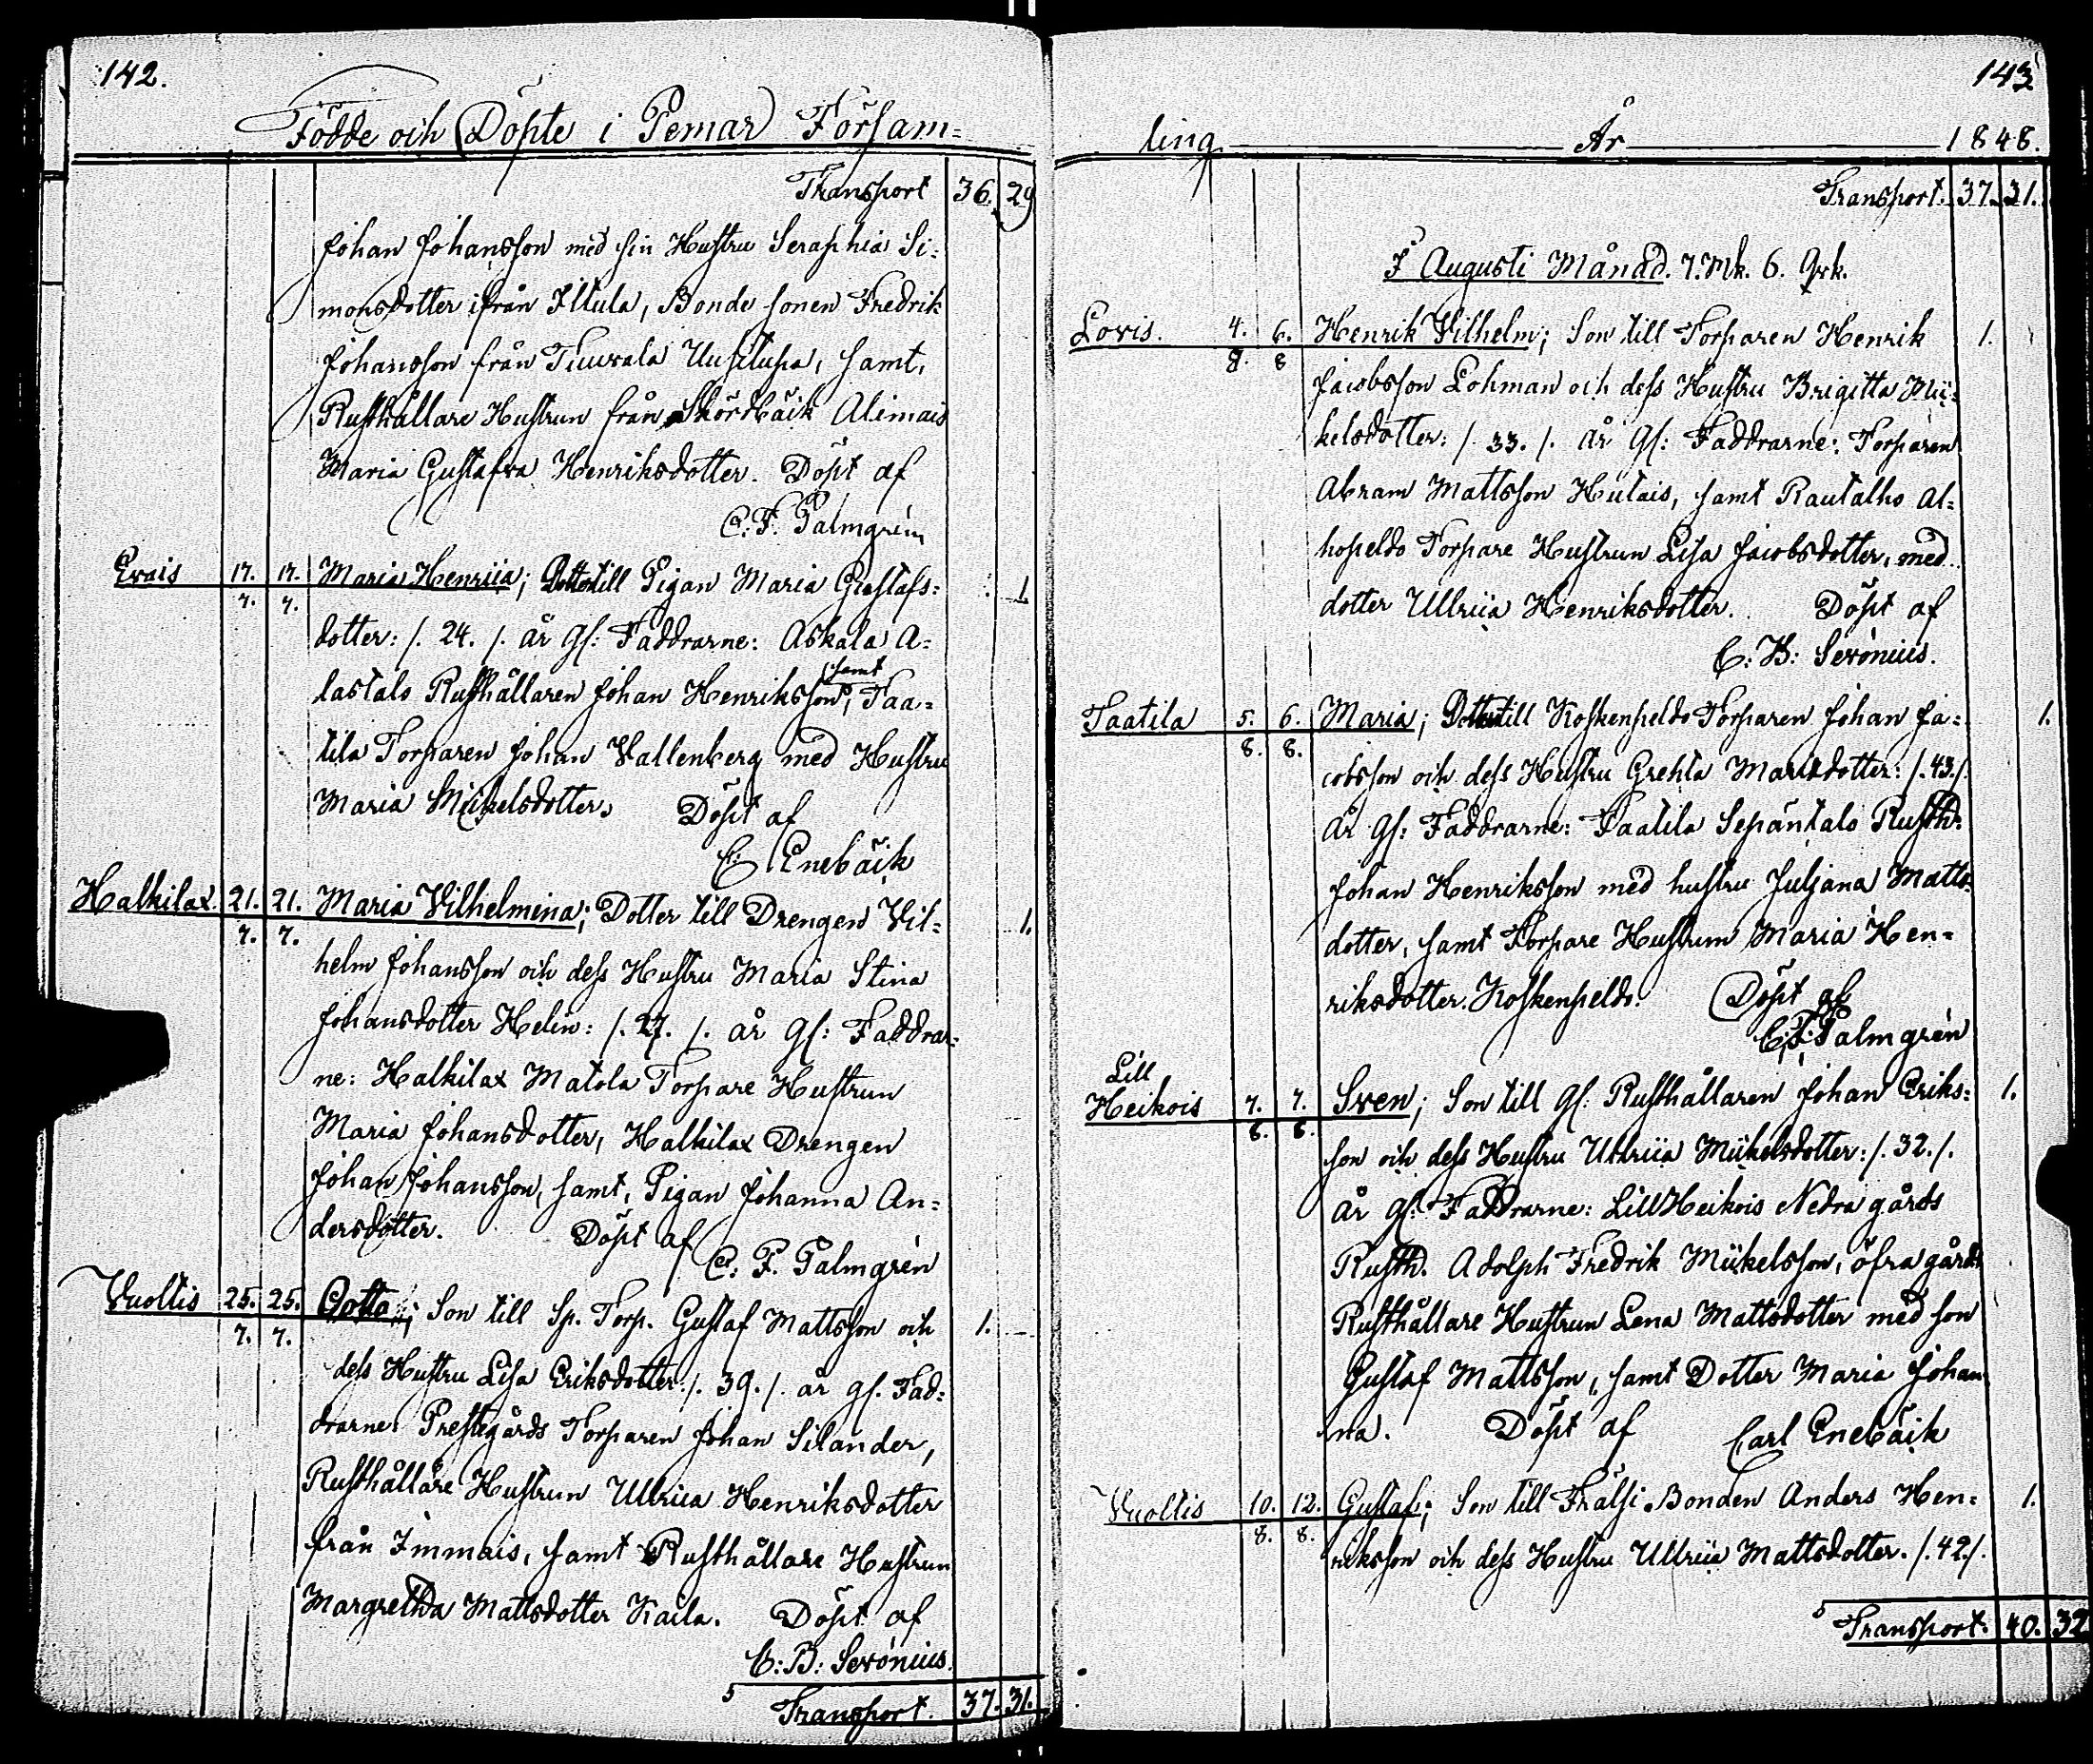 142.
Födde och Döpte i Pemar Försam-
Transport 36. 29
Johan Johansson med sin Hustru Seraphia Si-
monsdotter ifrån Iltula, Bonde sonen Fredrik
Johansson från samt,
Rusthållare Hustrun från Alimais
Maria Gustafva Henriksdotter. Döpt af
C. F. Palmgren
Evais 17. 17. Maria Henrica; Dotter till Pigan Maria Gustafs- 1
7. 7.
dotter: /. 24. /. år gl: Faddrarne: Askala A-
samt
lastalo Rusthållaren Johan Henriksson, Taa-
tila Torparen Johan Vallenberg med Hustru
Maria Mickelsdotter. Döpt af
C. Enebäck
Halkilax 21. 21. Maria Vilhelmina; Dotter till Drengen Vil- 1.
7. 7.
helm Johansson och dess Hustru Maria Stina
Johansdotter Helin: /. 27. /. år gl: Faddrar-
ne: Halkilax Matola Torpare Hustrun
Maria Johansdotter, Halkilax Drengen
Johan Johansson, samt, Pigan Johanna An-
dersdotter. Döpt af
C. F. Palmgrén
Vuoltis 25. 25. Gotto; Son till Sp. Torp. Gustaf Mattsson och 1.
7. 7.
dess Hustru Lisa Eriksdotter: /. 39. /. år gl. Fad-
drarne: Prestegårds Torparen Johan Silander,
Rusthållare Hustrun Ullrica Henriksdotter
från Immais, samt Rusthållare Hustrun
Margretha Mattsdotter Kaila. Döpt af
C: B: Serónius.
Transport. 37. 31.
143
ling. År 1848.
Transport. 37. 31.
I Augusti Månad. 7. Mk. 6. Qvk.
Lovis. 4. 6. Henrik Vilhelm; Son till Torparen Henrik 1.
8. 8
Jacobsson Lohman och dess Hustru Brigitta Mic-
kelsdotter: /. 33. /. år gl: Faddrarne: Torparen
Abram Mattsson Hutais, samt Rautalho Al-
hopeldo Torpare Hustrun Lisa Jacobsdotter, med
dotter Ullrica Henriksdotter. Döpt af
C: B: Serónius.
Taatila 5. 6. Maria; Dotter till Koskenpeldo Torparen Johan Ja- 1.
8. 8.
cobsson och dess Hustru Grehta Mattsdotter: /. 43. /.
år gl: Faddrarne: Taatila Sepäntalo Rusth:
Johan Henriksson med hustru Juljana Matts-
dotter, samt Torpare Hustrun Maria Hen-
riksdotter Koskenpeldo. Döpt af
C. F. Palmgrén
Lill
Heikois 7. 7. Sven; Son till gl: Rusthållaren Johan Eriks- 1.
8. 8.
son och dess Hustru Ullrica Mickelsdotter: /. 32. /.
år gl: Faddrarne: Lill Heikois Nedra gårds
Rusth. Adolph Fredrik Mickelsson, öfra gårds
Rusthållare Hustrun Lena Mattsdotter med son
Gustaf Mattsson, samt Dotter Maria Johan
na. Döpt af Carl Enebäck
Vuoltis 10. 12. Gustaf; Son till Frälse Bonden Anders Hen- 1.
8. 8.
riksson och dess Hustru Ullrica Mattsdotter. /. 42. /.
Transport. 40. 32